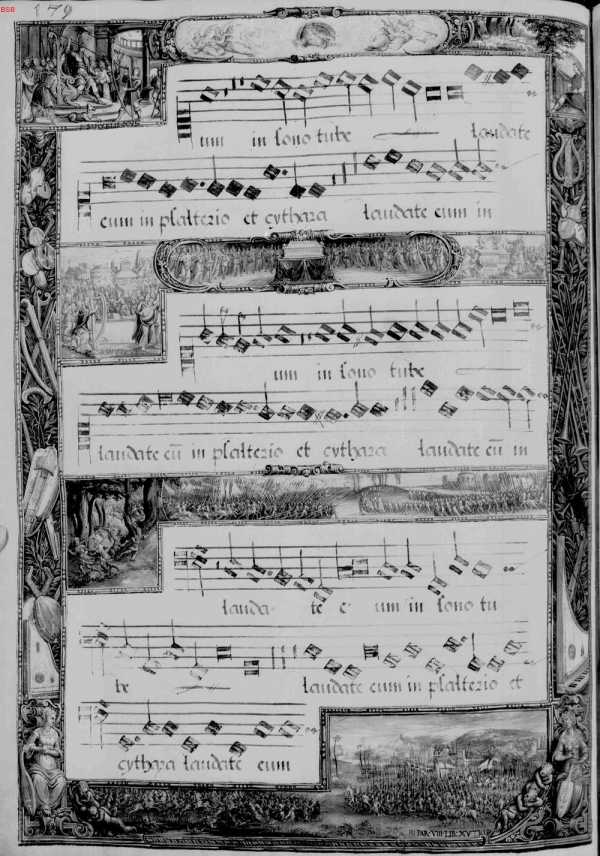 BSB
179
um in sono tube laudate
eum in psalterio et cythara laudate eum in
um in sono tube
laudate eū in psalterio et cythara laudate eū in
lauda- te e- um in sono tu
be laudate eum in psalterio et
cythara laudate eum